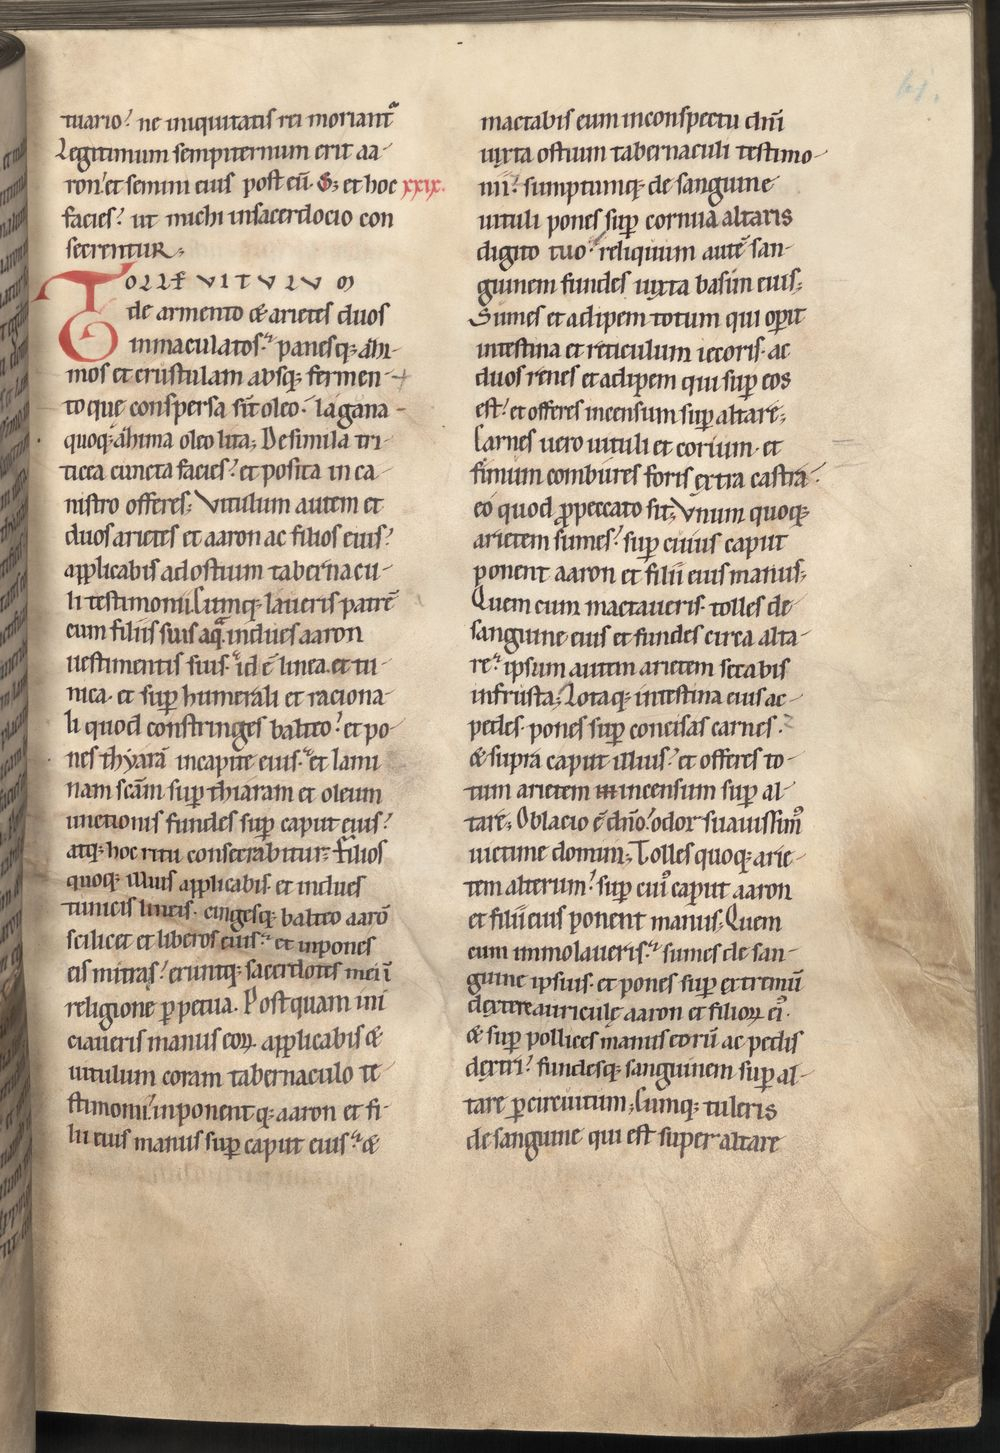 61.
tuario? ne iniquitatis rei moriant᷑
Legitimum sempiternum erit aa-
ron? et semini eius post eū. S; et hoc xxix.
facies? ut michi insacerdocio con
secrentur;
TOLLE VITULUM
de armento & arietes duos
inmaculatos? panesq; ăhi-
mos et crustulam absq; fermen-
to que conspersa sīt oleo. lagana
quoq; ăhima oleo lita; De simila tri-
ticea cuncta facies? et posita in ca-
nistro offeres; Vitulum autem et
duos arietes et aaron ac filios eius?
applicabis ad ostium tabernacu-
li testimonii. Cumq; laueris patrē
cum filiis suis aq̄. indues aaron
uestimentis suis? id ē linea. et tu-
nica. et suꝑ humerali et raciona-
li quod constringes balteo? et po-
nes thyarā incapite eius? et lami
nam scām suꝑ thiaram et oleum
unctionis fundes suꝑ caput eius?
atq; hoc ritu consecrabitur; Filios
quoq; illius applicabis et indues
tunicis lineis. cingesq; balteo aarō
scilicet et liberos eius? et inpones
eis mitras? eruntq; sacerdotes mei ī
religione ꝑpetua. Postquam ini
ciaueris manus eoꝝ. applicabis &
uitulum coram tabernaculo te-
stimonii. inponentq; aaron et fi-
lii eius manus suꝑ caput eius? &
mactabis eum inconspectu dn̄i
iuxta ostium tabernaculi testimo-
nii? sumptumq; de sanguine
uituli pones suꝑ cornua altaris
digito tuo? reliquum autē san-
guinem fundes iuxta basim eius;
Sumes et adipem totum qui oꝑit
intestina et reticulum iecoris. ac
duos renes et adipem qui suꝑ eos
est? et offeres incensum suꝑ altare;
Carnes uero uituli et corium. et
fimum combures foris extra castra?
eo quod ꝓ peccato sit; Vnum quoq;
arietem sumes? suꝑ cuius caput
ponent aaron et filii eius manus;
Quem cum mactaueris. tolles de
sanguine eius et fundes circa alta-
re? ipsum autem arietem secabis
infrusta; Lotaq; intestina eius ac
pedes. pones suꝑ concisas carnes.
& supra caput illius? et offeres to-
tum arietem incensum suꝑ al-
tare; Oblacio ē dn̄o? odor suauissim᷒
uictime domini; Tolles quoq; arie-
tem alterum? suꝑ cui᷒ caput aaron
et filii eius ponent manus; Quem
cum immolaueris? sumes de san-
guine ipsius. et pones suꝑ extremū
dextere auricule aaron et filioꝝ ei᷒.
& suꝑ pollices manus eorū ac pedis
dextri? fundesq; sanguinem suꝑ al-
tare ꝑ circuitum; Cumq; tuleris
de sanguine qui est super altare